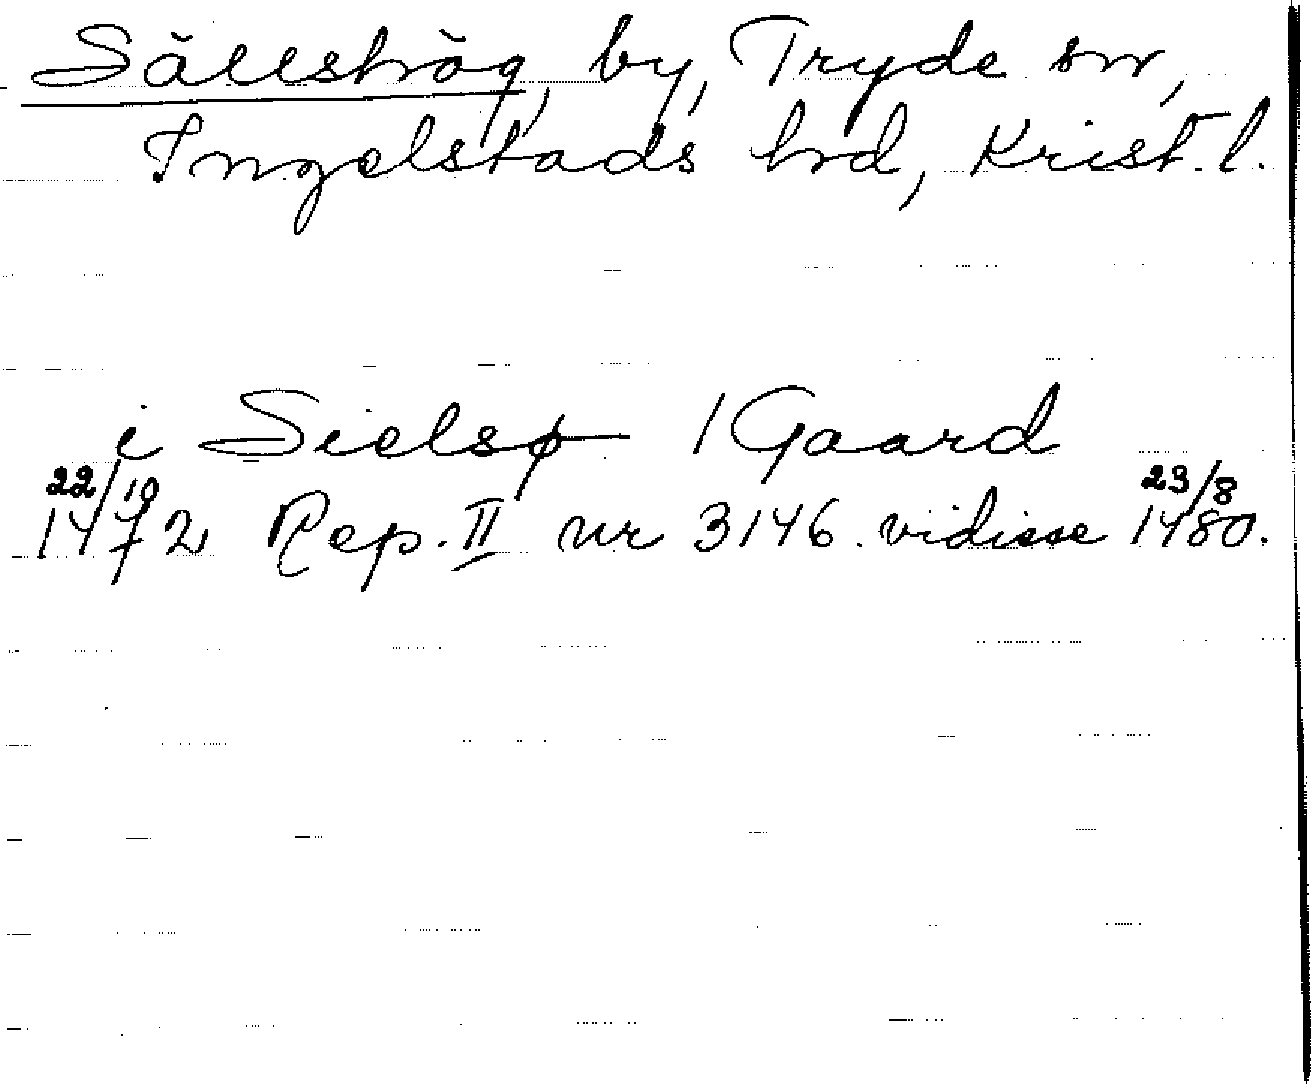 Sällshög, by, Tryde sn,
Ingelstads hrd, Krist. l.
i Sielsø 1 Gaard
22/10 23/8
1472 Rep. II nr 3146. vidisse 1480.